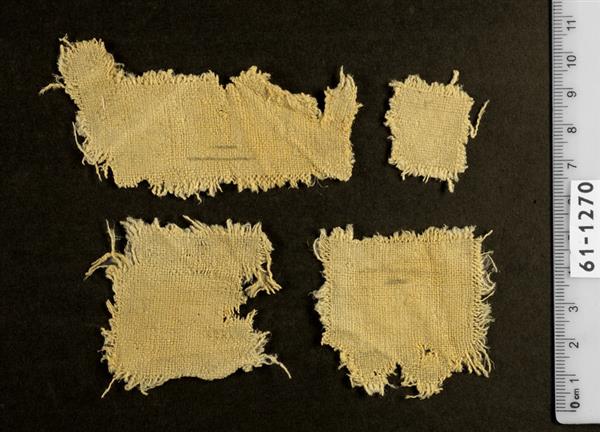 11
10
9
8
7
61-1270
3
2
1
0 cm